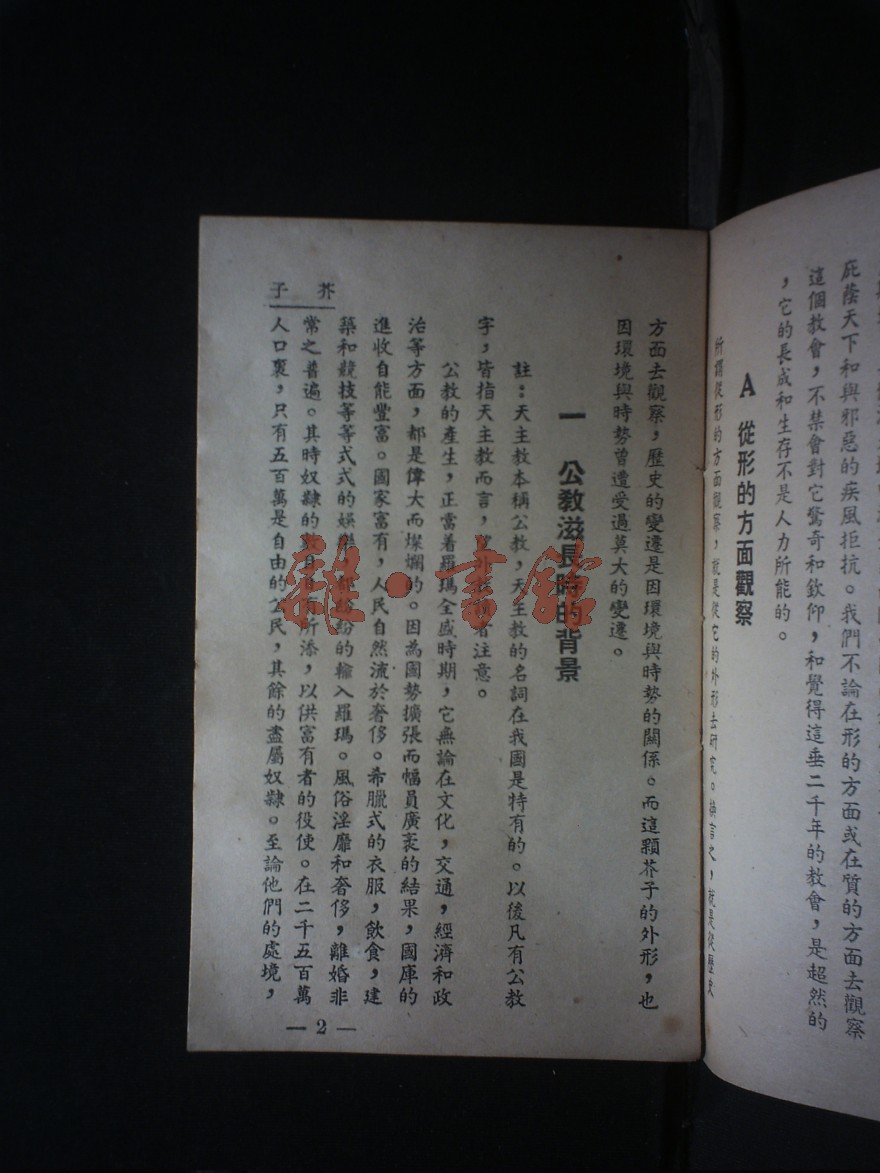 庇蔭天下和與邪惡的疾風拒抗。我們不論在形的方面或在質的方面去觀察
這個教會，不禁會對它驚奇和欽仰，和覺得這垂二千年的教會，是超然的
，它的長成和生存不是人力所能的。
A 從形的方面觀察
所謂從形的方面觀察，就是從它的外形去研究。換言之，就是從歷史
方面去觀察，歷史的變遷是因環境與時勢的關係。而這顆芥子的外形，也
因環境與時勢曾遭受過莫大的變遷。
一 公教滋長時的背景
註：天主教本稱公教，天主教的名詞在我國是特有的。以後凡有公教
字，皆指天主教而言，外教讀者注意。
公教的產生，正當着羅瑪全盛時期，它無論在文化，交通，經濟和政
治等方面，都是偉大而燦爛的。因為國勢擴張而幅員廣袤的結果，國庫的
進收自能豐富。國家富有，人民自然流於奢侈。希臘式的衣服，飲食，建
築和競技等等式式的娛樂，都紛紛的輸入羅瑪。風俗淫靡和奢侈，離婚非
常之普遍。其時奴隸的數目有所添，以供富有者的役使。在二千五百萬
人口裏，只有五百萬是自由的公民，其餘的盡屬奴隸。至論他們的處境，
芥子
— 2 —
雜·書館